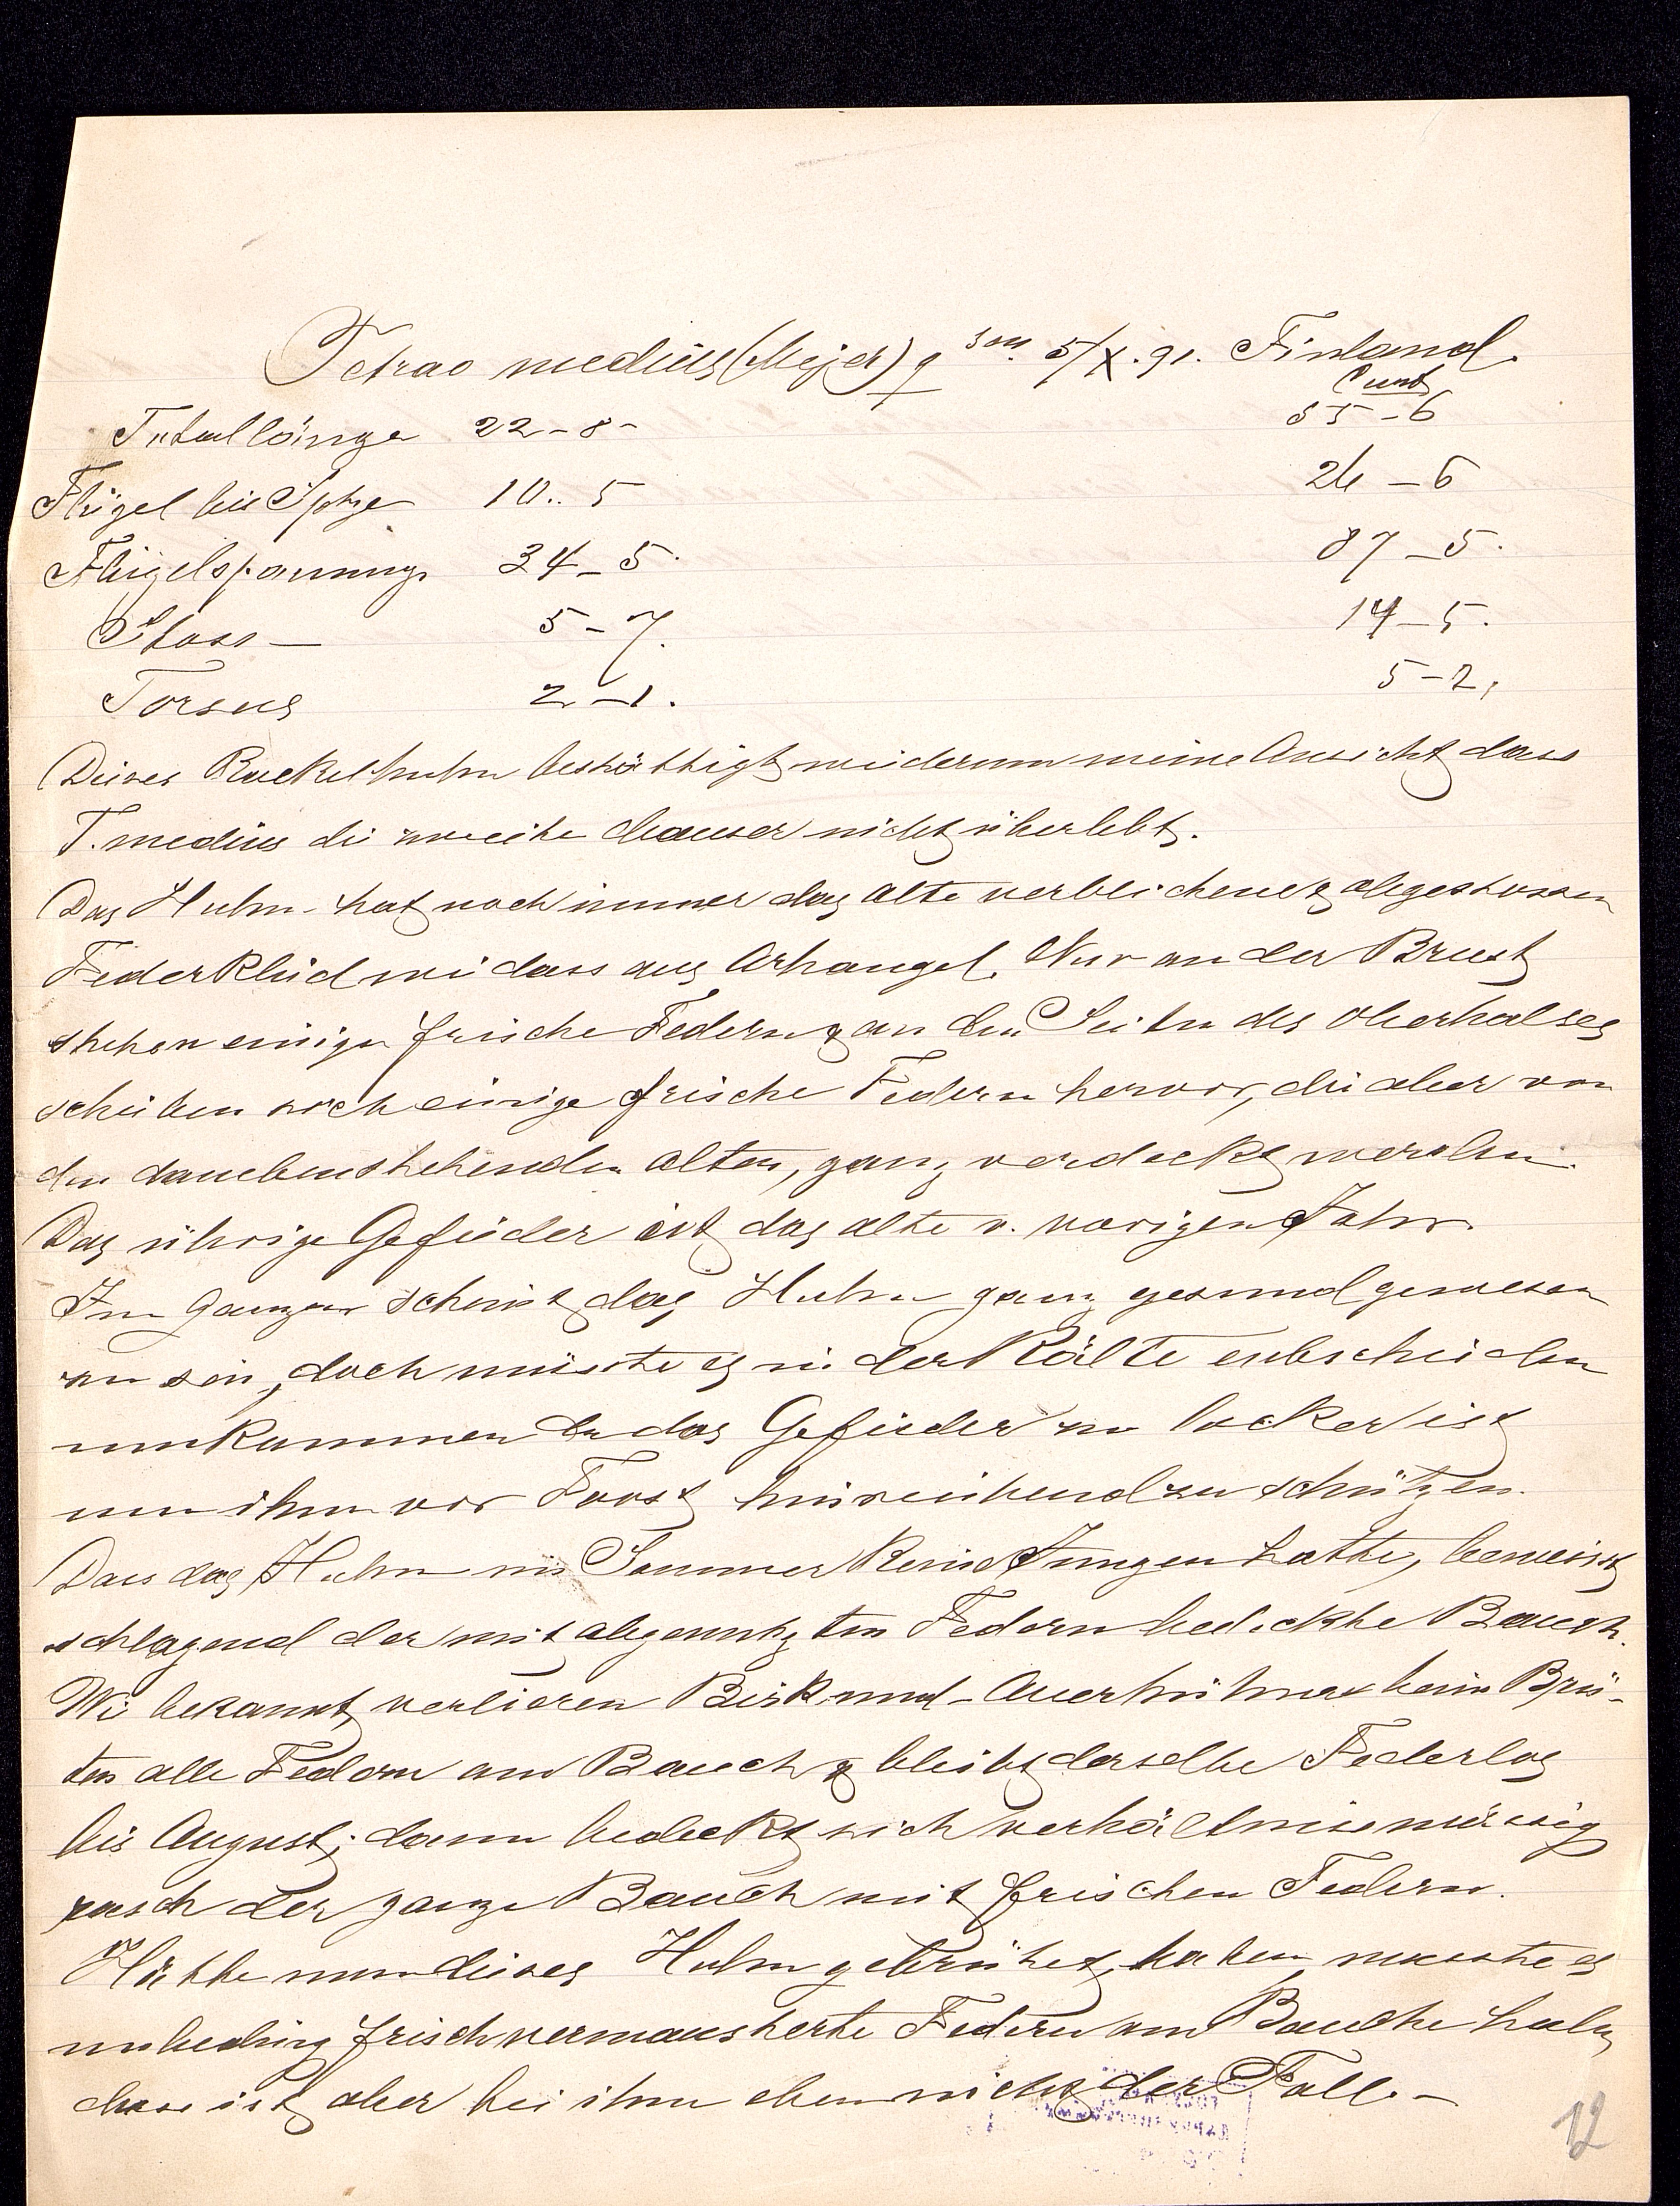 Tetrao medius (Mejer) ♀ sen. 5/X.91. Finland.
Cunt
Totallänge 22-8- 55-6
Flügel bis Spitze 10..5 26-6
Flügelspannung 34-5. 87-5.
Stoss- 5-7. 14-5.
Torsus 2-1. 5-2,
Dieses Rackelhuhn bestättigt wiederum meine Ansicht dass
T. medius die zweite Mauser nicht überlebt.
Das Huhn- hat noch immer das alte verblichene & abgestossen
Federkleid wie dass aus Arhangel. Nur an der Brust
stehen einige frische Federn & an den Seiten des Oberhalses
schieben sich einige frische Federn hervor, die aber von
den danebenstehenden alten, ganz verdeckt werden.
Das übrige Gefieder ist das alte v. vorigen Jahr.
Im Ganzen scheint das Huhn ganz gesund gewesen
zu sein, doch müsste es in der Kälte entscheiden
umkommen da das Gefieder zu locker ist
um ihm vor Frost hinreichend zu schützen.
Dass das Huhn im Sommer keine Jungen hatte, beweisst
schlagend der mit abgenutzten Federn bedeckte Bauch.
Wie bekannt, verlieren Birk-und-Auerhühner beim Brü-
ten alle Federn am Bauch & bleibt derselbe Federlos
bis August; dann bedeckt sich verhältnissmässig
rasch der ganze Bauch mit frischen Federn.
Hätte nun dieses Huhn gebrütet, haben, musste es
unbeding frisch vermauserte Federn am Bauche haben
dass ist aber bei ihm eben nicht der Fall.-
12